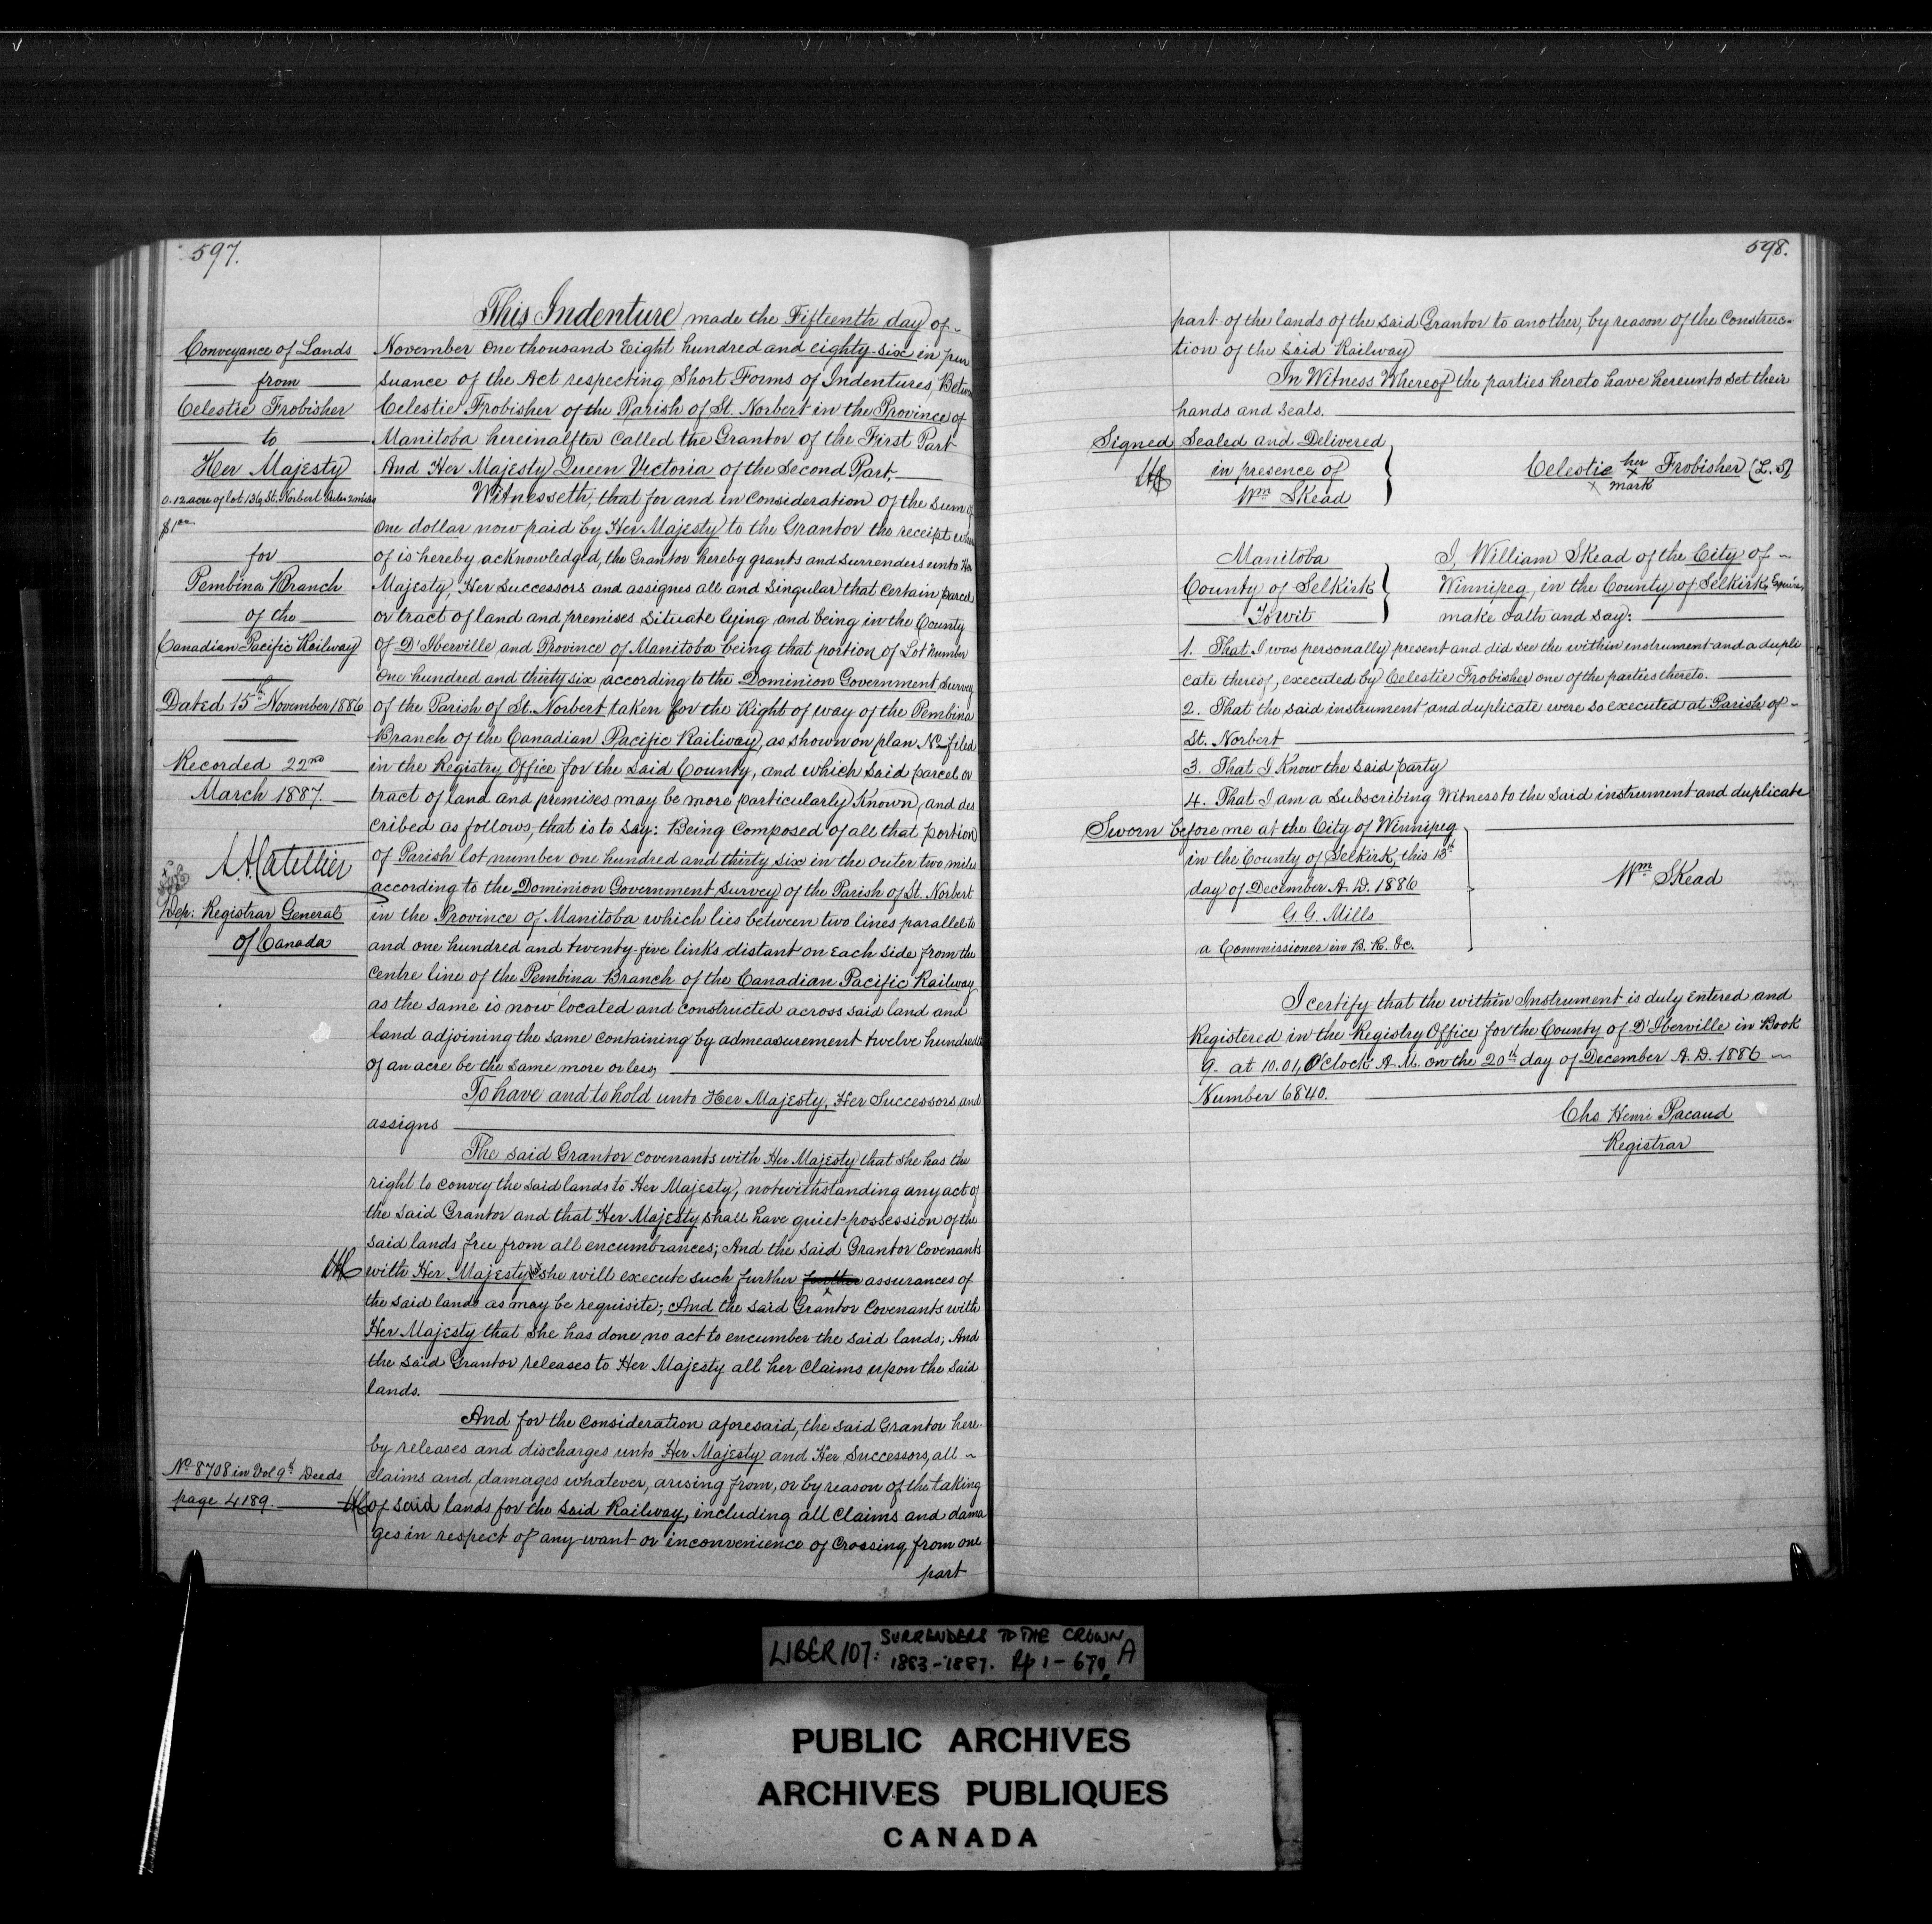 597.
Conveyance of Lands
from
Celestie Frobisher
to
Her Majesty
0.12 acre of lot 136, St. Norbert Outer 2 miles
$1.00
for
Pembina Branch
of the
Canadian Pacific Railway
Dated 15th November 1886
Recorded 22nd
March 1887.
Dep: Registrar General
of Canada
No 8708 in Vol 9th Deeds
page 4189.
This Indenture made the Fifteenth day of
November One thousand Eight hundred and eighty-six in pur
suance of the Act respecting Short Forms of Indentures, Between
Celestie Frobisher of the Parish of St. Norbert in the Province of
Manitoba hereinafter called the Grantor of the First Part
And Her Majesty Queen Victoria of the Second Part,
Witnesseth, that for and in Consideration of the Sum of
One dollar now paid by Her Majesty to the Grantor the receipt where
of is hereby acknowledged, the Grantor hereby grants and Surrenders unto Her
Majesty, Her Successors and assignes all and Singular that Certain parcel
or tract of land and premises Situate lying and being in the County
of D'Iberville and Province of Manitoba being that portion of Lot Number
One hundred and thirty six according to the Dominion Government Survey
of the Parish of St. Norbert taken for the Right of way of the Pembina
Branch of the Canadian Pacific Railway, as shown on plan No filed
in the Registry Office for the said County, and which said parcel or
tract of land and premises may be more particularly Known, and des
cribed as follows, that is to say: Being Composed of all that portion
of Parish lot number one hundred and thirty six in the outer two miles
according to the Dominion Government Survey of the Parish of St. Norbert
in the Province of Manitoba which lies between two lines parallel to
and one hundred and twenty-five links distant on Each side from the
Centre line of the Pembina Branch of the Canadian Pacific Railway
as the same is now located and constructed across said land and
land adjoining the same containing by admeasurement twelve hundredth
of an acre be the same more or less,
To have and to hold unto Her Majesty, Her Successors and
assigns
The said Grantor covenants with Her Majesty that She has the
right to convey the said lands to Her Majesty, notwithstanding any act of
the said Grantor and that Her Majesty shall have quiet possession of the
said lands free from all encumbrances; And the said Grantor Covenants
with Her Majesty she will execute such further further assurances of
the said lands as may be requisite; And the said Grantor Covenants with
Her Majesty that she has done no act to encumber the said lands; And
the said Grantor releases to Her Majesty all her Claims upon the said
lands.
And for the Consideration aforesaid, the said Grantor here
by releases and discharges unto Her Majesty and Her Successors, all
Claims and damages whatever, arising from, or by reason of the taking
of said lands for the said Railway, including all Claims and dama
ges in respect of any want or inconvenience of Crossing from one
part
598.
part of the lands of the said Grantor to another, by reason of the Construc-
tion of the said Railway
In Witness Whereof the parties hereto have hereunto set their
hands and seals.
Signed Sealed and Delivered
in presence of
Wm Skead
Celestie her Frobisher (L.S)
x mark
Manitoba
County of Selkirk
To wit
I, William Skead of the City of
Winnipeg, in the County of Selkirk, Esquire,
make oath and say:
1. That I was personally present and did see the within instrument and a dupli
cate thereof, executed by Celestie Frobisher one of the parties thereto.
2. That the said instrument and duplicate were so executed at Parish of
St. Norbert
3. That I Know the said party
4. That I am a Subscribing Witness to the said instrument and duplicate
Sworn before me at the City of Winnipeg
in the County of Selkirk, this 13th
day of December A. D. 1886
G. G. Mills
a Commissioner in B. R. &c.
Wm Skead
I certify that the within Instrument is duly Entered and
Registered in the Registry Office for the County of D'Iberville in Book
9. at 10.01, O'Clock A.M. on the 20th day of December A. D. 1886
Number 6840.
Chs Henri Pacaud
Registrar
LIBER 107: SURRENDERS TO THE CROWN
1883-1887. Pp 1-670 A
PUBLIC ARCHIVES
ARCHIVES PUBLIQUES
CANADA